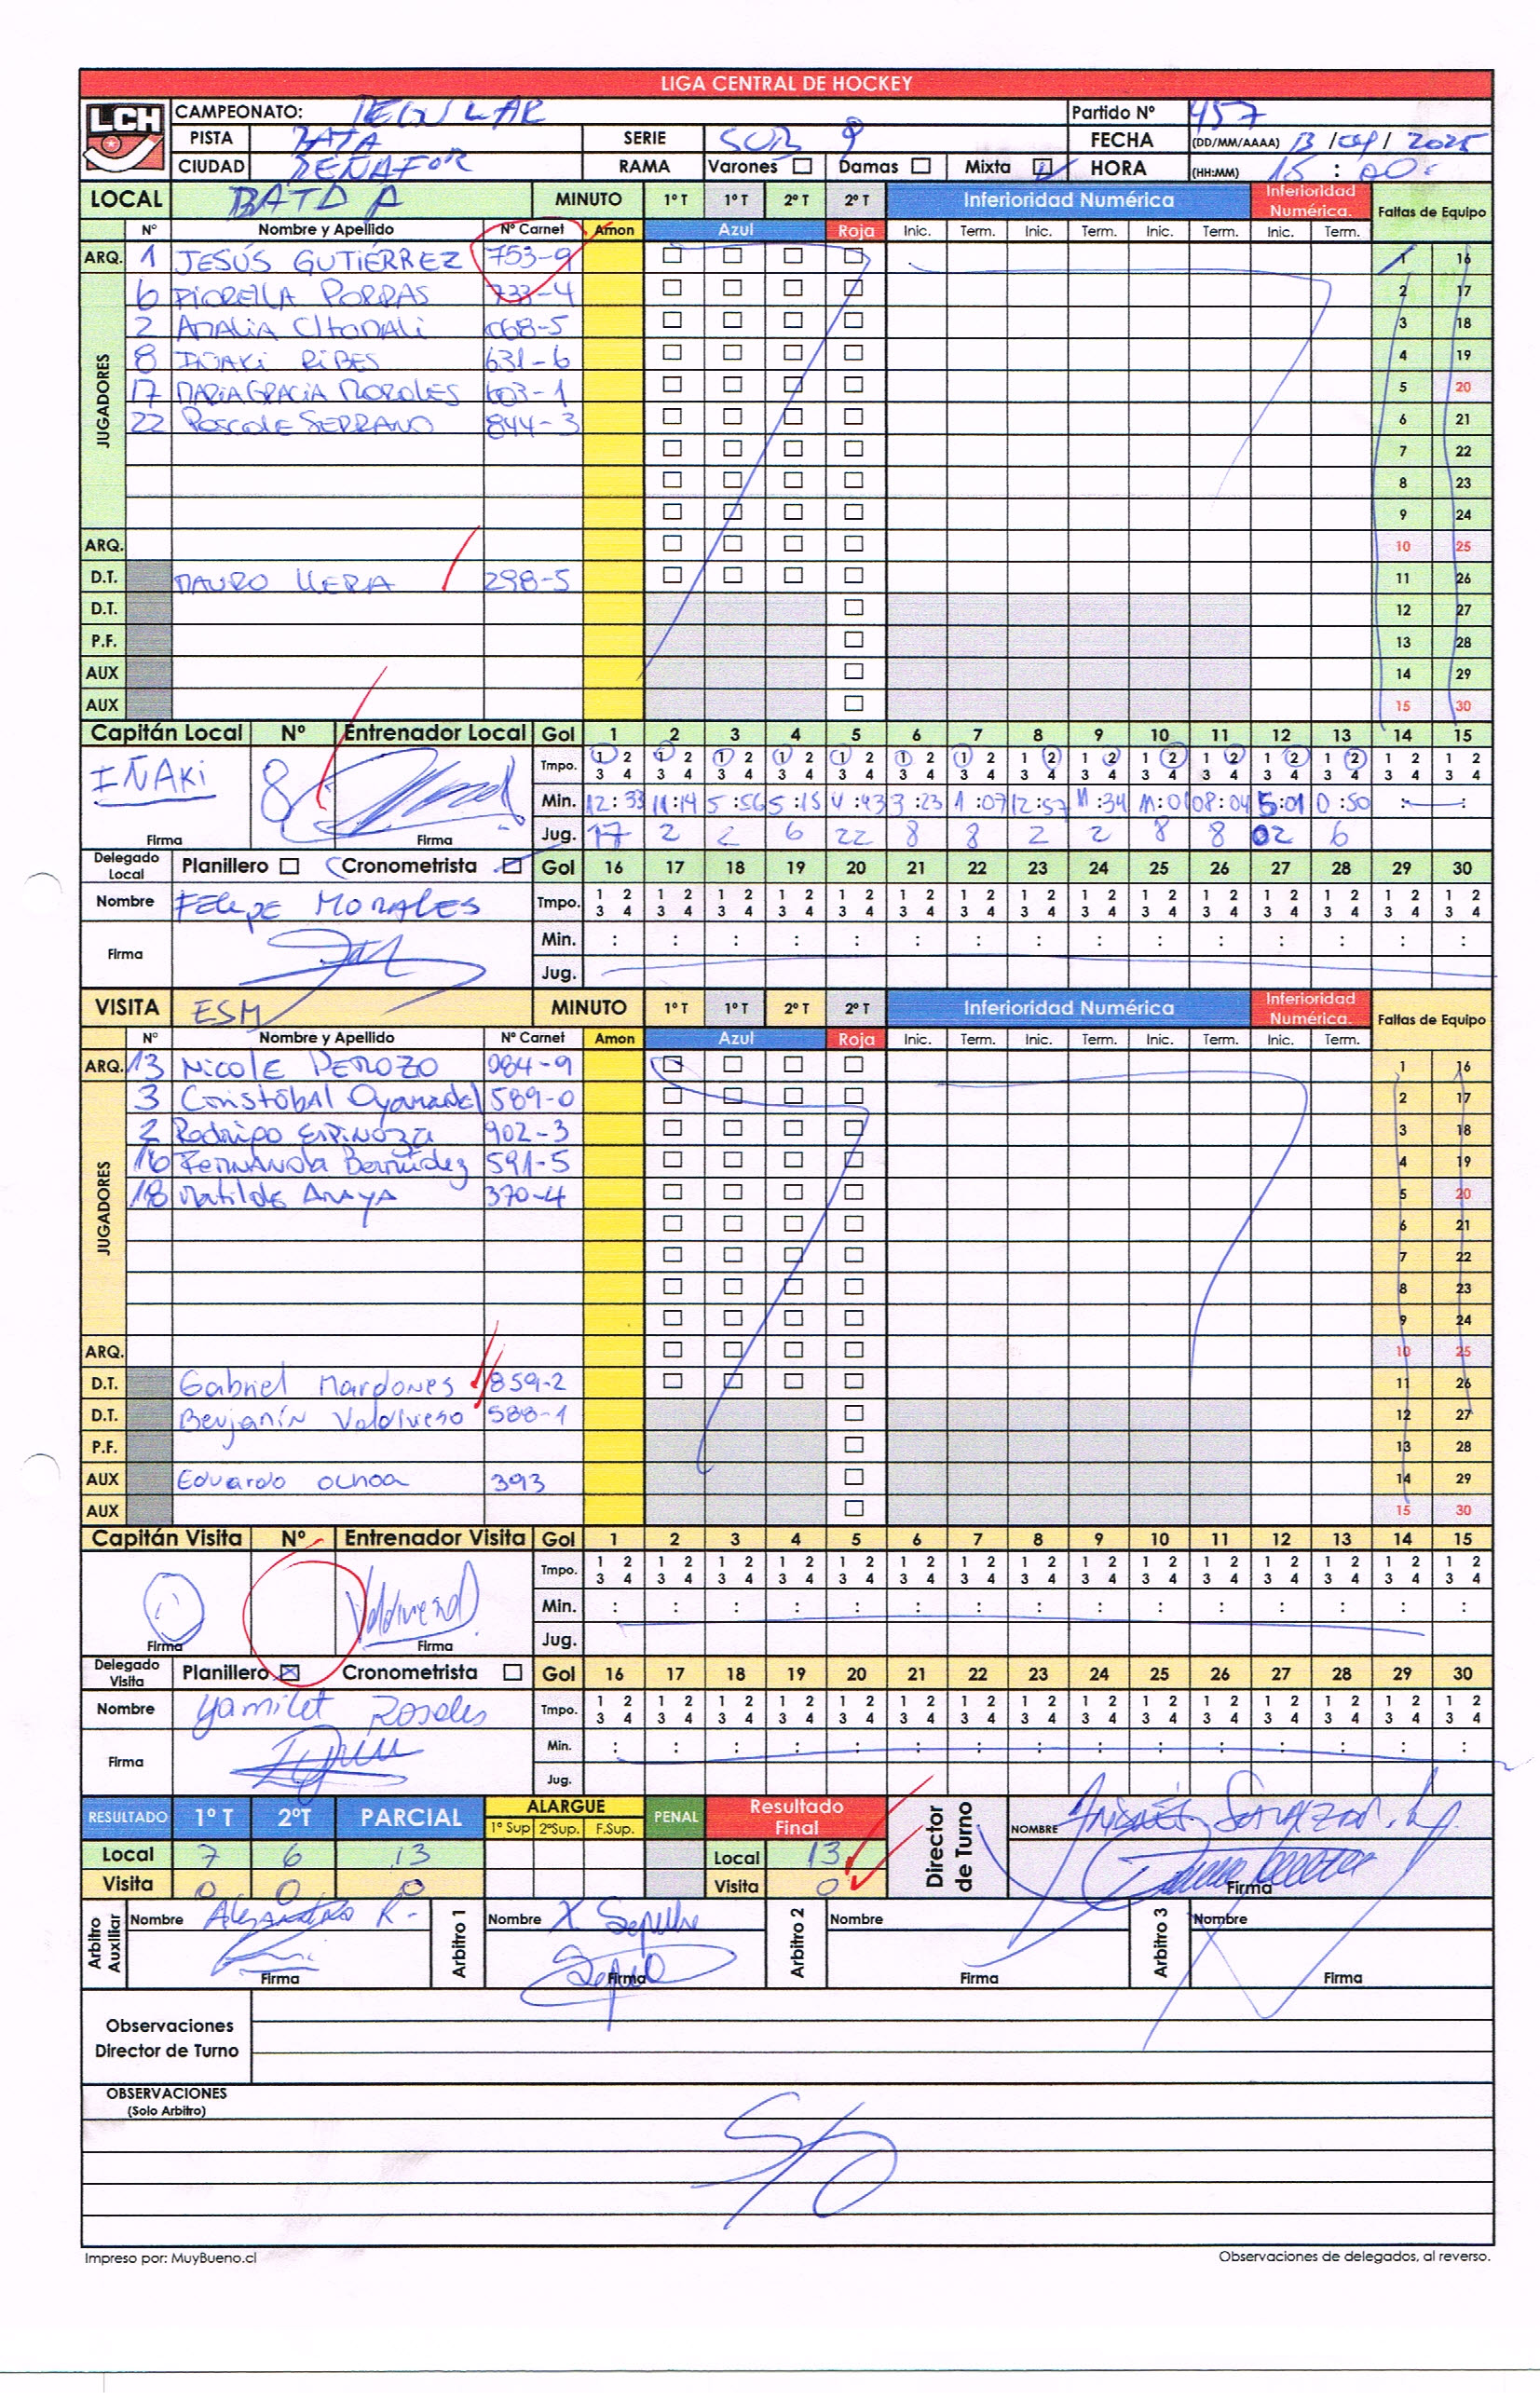 LIGA CENTRAL DE HOCKEY
LCH
CAMPEONATO: Partido Nº 457
PISTA BATA SERIE SUB 9 FECHA (DD/MM/AAAA) 13 / / 2025
CIUDAD PEÑAFOR RAMA Varones Damas Mixta HORA (HH:MM) 15 : 00
LOCAL BATA A MINUTO 1º T 1º T 2º T 2º T Inferioridad Numérica Inferioridad Numérica. Faltas de Equipo
Nº Nombre y Apellido Nº Carnet Amon Azul Roja Inic. Term. Inic. Term. Inic. Term. Inic. Term.
ARQ. 1 JESÚS GUTIÉRREZ 753-9 1 16
JUGADORES
6 FIORELLA PORRAS 733-4 2 17
2 068-5 3 18
8 IÑAKI RIBES 631-6 4 19
17 MARIAGRACIA MORALES 603-1 5 20
22 SERRANO 844-3 6 21
7 22
8 23
9 24
ARQ. 10 25
D.T. MAURO 298-5 11 26
D.T. 12 27
P.F. 13 28
AUX 14 29
AUX 15 30
Capitán Local Nº Entrenador Local Gol 1 2 3 4 5 6 7 8 9 10 11 12 13 14 15
IÑAKI 8 Tmpo. 1 2 1 2 1 2 1 2 1 2 1 2 1 2 1 2 1 2 1 2 1 2 1 2 1 2 1 2 1 2
3 4 3 4 3 4 3 4 3 4 3 4 3 4 3 4 3 4 3 4 3 4 3 4 3 4 3 4 3 4
Min. 12:33 11:14 5:56 5:15 :43 3:23 1:07 12:57 11:34 11:01 08:04 5:01 0:50 :
Firma Firma Jug. 17 2 2 6 22 8 8 2 2 8 8 02 6
Delegado Local Planillero Cronometrista Gol 16 17 18 19 20 21 22 23 24 25 26 27 28 29 30
Nombre FELIPE MORALES Tmpo. 1 2 1 2 1 2 1 2 1 2 1 2 1 2 1 2 1 2 1 2 1 2 1 2 1 2 1 2 1 2
3 4 3 4 3 4 3 4 3 4 3 4 3 4 3 4 3 4 3 4 3 4 3 4 3 4 3 4 3 4
Firma Min. : : : : : : : : : : : : : : :
Jug.
VISITA ESM MINUTO 1º T 1º T 2º T 2º T Inferioridad Numérica Inferioridad Numérica. Faltas de Equipo
Nº Nombre y Apellido Nº Carnet Amon Azul Roja Inic. Term. Inic. Term. Inic. Term. Inic. Term.
ARQ. 13 NICOLE PEROZO 984-9 1 16
JUGADORES
3 Cristóbal Oyanadel 589-0 2 17
2 Rodrigo ESPINOZA 902-3 3 18
16 FERNANDA Bermúdez 591-5 4 19
18 Matilde ANAYA 370-4 5 20
6 21
7 22
8 23
9 24
ARQ. 10 25
D.T. Gabriel Mardones 859-2 11 26
D.T. Benjamín Valdivieso 588-1 12 27
P.F. 13 28
AUX Eduardo Ochoa 393 14 29
AUX 15 30
Capitán Visita Nº Entrenador Visita Gol 1 2 3 4 5 6 7 8 9 10 11 12 13 14 15
Tmpo. 1 2 1 2 1 2 1 2 1 2 1 2 1 2 1 2 1 2 1 2 1 2 1 2 1 2 1 2 1 2
3 4 3 4 3 4 3 4 3 4 3 4 3 4 3 4 3 4 3 4 3 4 3 4 3 4 3 4 3 4
Min. : : : : : : : : : : : : : : :
Firma Firma Jug.
Delegado Visita Planillero Cronometrista Gol 16 17 18 19 20 21 22 23 24 25 26 27 28 29 30
Nombre Yamilet Rosales Tmpo. 1 2 1 2 1 2 1 2 1 2 1 2 1 2 1 2 1 2 1 2 1 2 1 2 1 2 1 2 1 2
3 4 3 4 3 4 3 4 3 4 3 4 3 4 3 4 3 4 3 4 3 4 3 4 3 4 3 4 3 4
Firma Min. : : : : : : : : : : : : : : :
Jug.
RESULTADO 1º T 2ºT PARCIAL ALARGUE 1º Sup 2ºSup. F.Sup. PENAL Resultado Final Director de Turno NOMBRE
Local 7 6 13 Local 13
Visita 0 0 0 Visita 0 Firma
Arbitro Auxiliar Nombre Alejandro R. Arbitro 1 Nombre Arbitro 2 Nombre Arbitro 3 Nombre
Firma Firma Firma Firma
Observaciones
Director de Turno
OBSERVACIONES
(Solo Arbitro)
S/O
Impreso por: MuyBueno.cl Observaciones de delegados, al reverso.